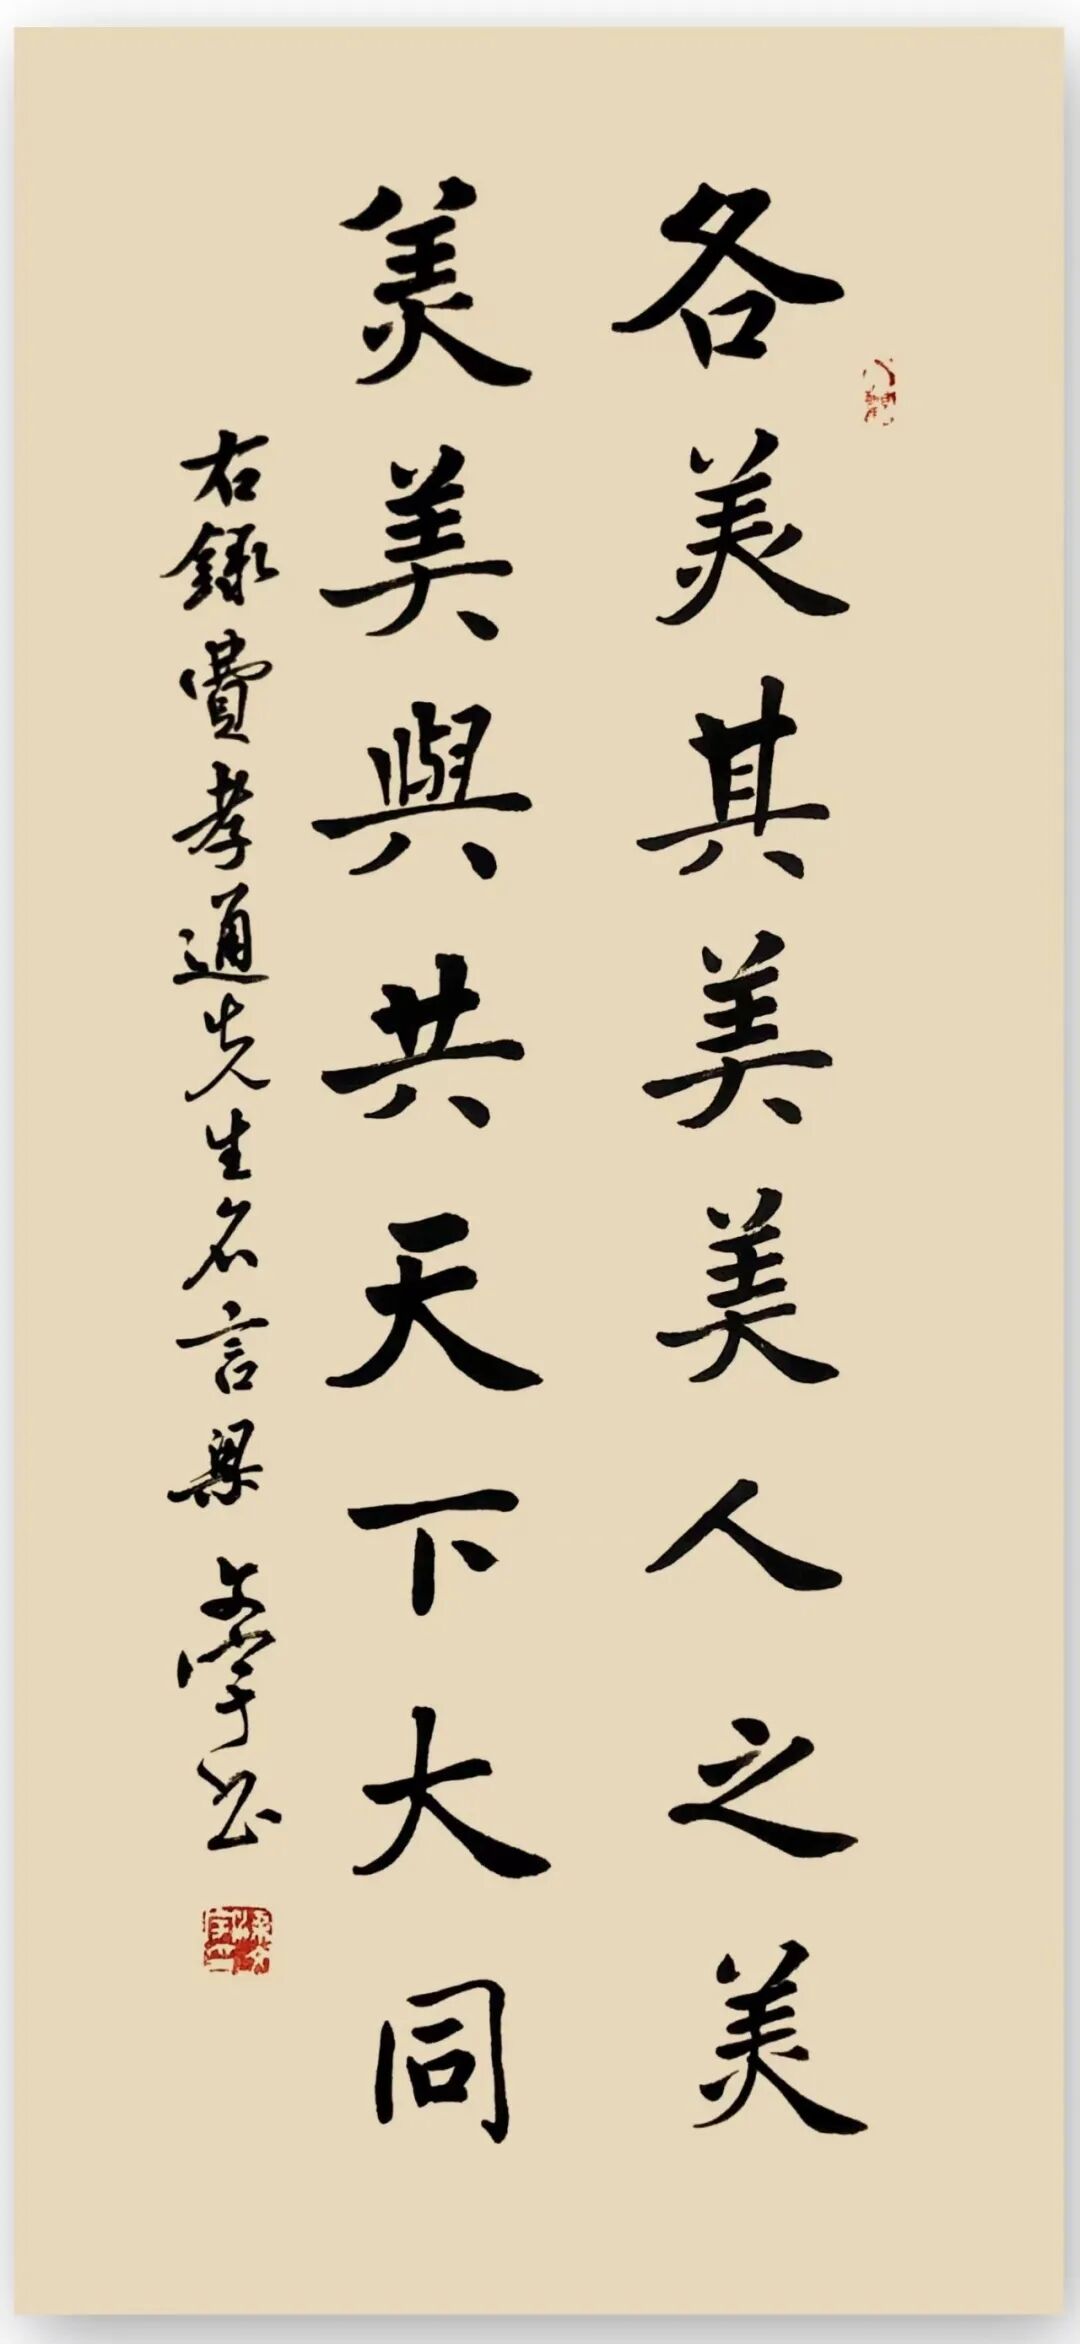 各美其美美人之美
美美與共天下大同
右錄費孝通先生名言梁文學书